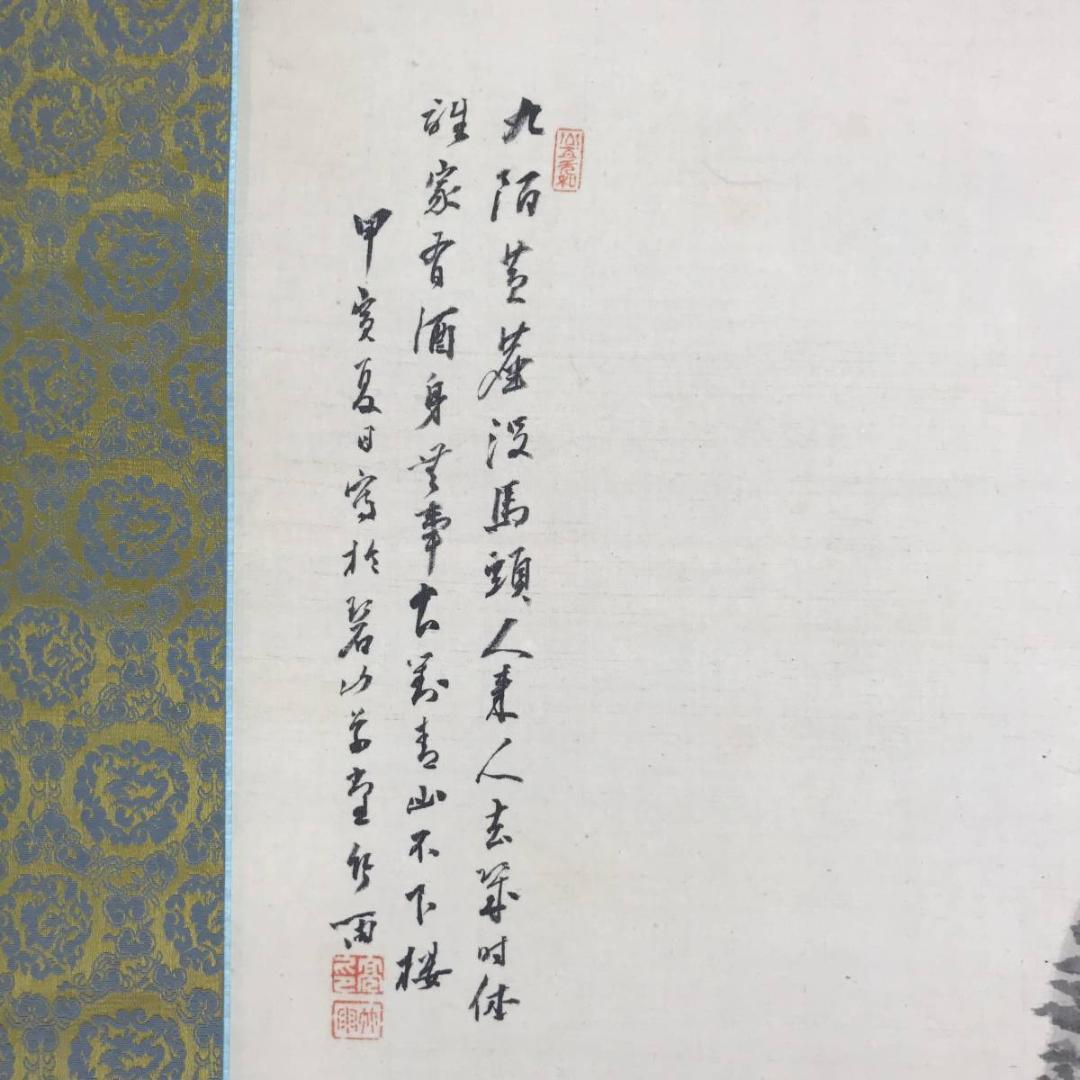 九陌黄塵没馬頭人来人去幾时休
誰家有酒身無事古對青山不下楼
甲寅夏日寫於碧山草堂竹雨